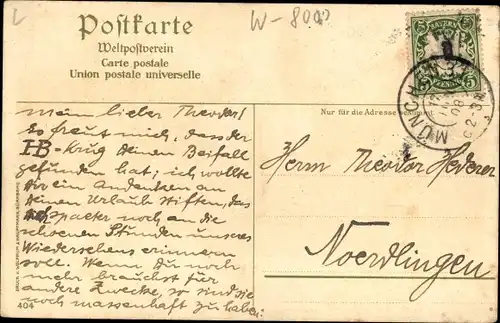 L
W-8000
Postkarte
Weltpostverein
Carte postale
Union postale universelle
BAYERN
5
5
PFENNIG
MÜNCH
08
Nur für die Adresse
mein lieber Theodor!
Es freut mich, dass der
HB-Krug Deinen Beifall
gefunden hat; ich wollte
Dir ein Andenken an
Deinen Urlaub stiften, das
spaeter noch an die
schoenen Stunden unseres
Wiedersehens erinnern
soll. Wenn Du noch
mehr brauchst für
andere Zwecke, so sind sie
noch massenhaft zu haben.
Herrn Theodor Hederer
Noerdlingen
404